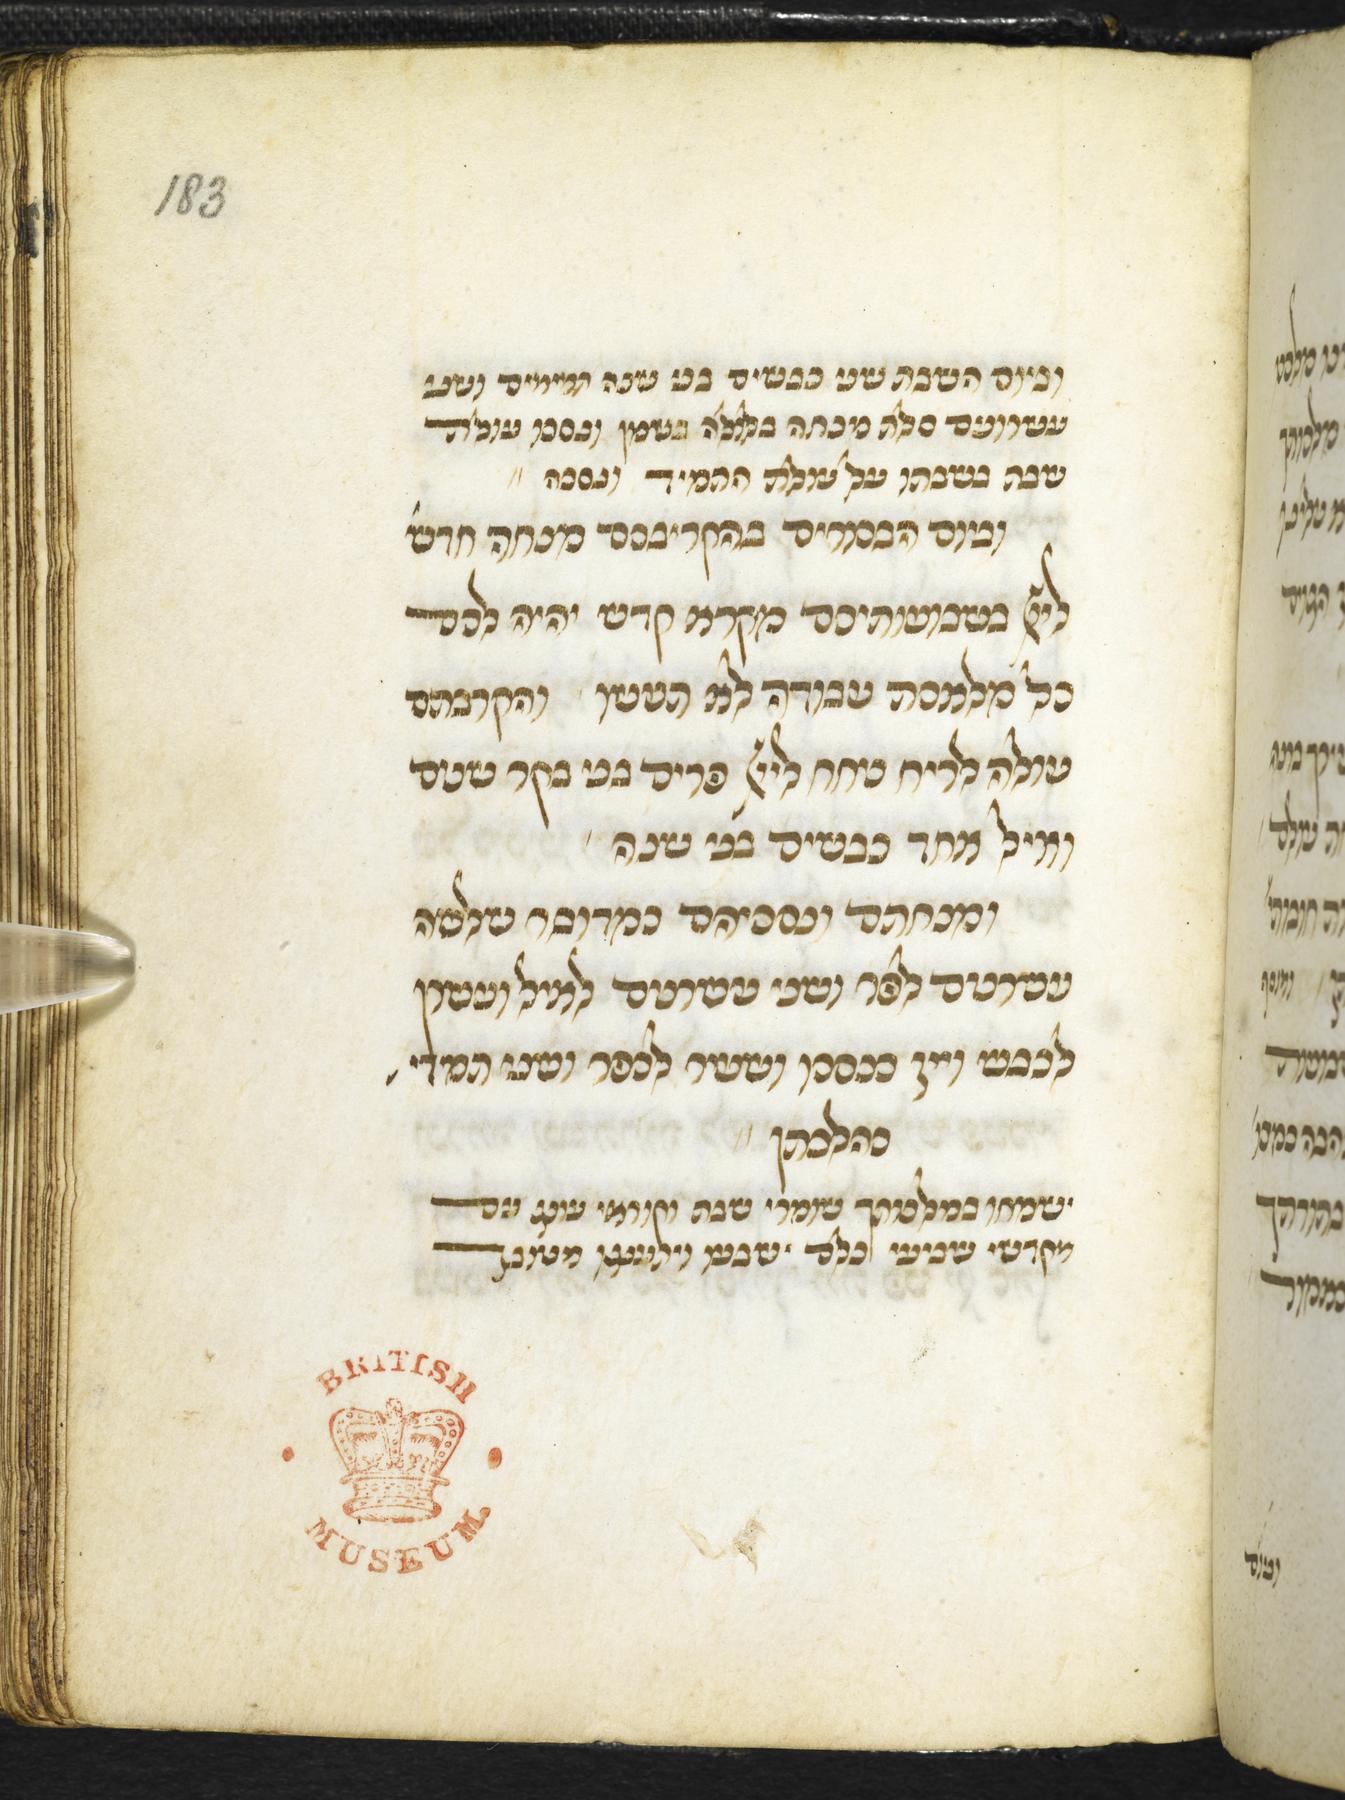 183
וביום השבת שני כבשים בני שנה תמימים ושני
עשרונים סלת מנחה בלולה בשמן ונסכו עולת
שבת בשבתו על עולת התמיד ונסכה
וביום הבכורים בהקריבכם מנחה חדש׳
לי׳י בשבועותיכם מקרא קדש יהיה לכם
כל מלאכת עבודה לא תעשו והקרבתם
עולה לריח ניחח לי׳י פרים בני בקר שנים
ואיל אחד כבשים בני שנה
ומנחתם ונסכיהם כמדובר שלשה
עשרונים לפר ושני עשרונים לאיל ועשרון
לכבש ויין כנסכו ושעיר לכפר ושני תמידי׳
כהלכתן
ישמחו במלכותך שומרי שבת וקוראי עונג עם
מקדשי שביעי כלם ישבעו ויתענגו מטובך
BRITISH
MUSEUM
וביום